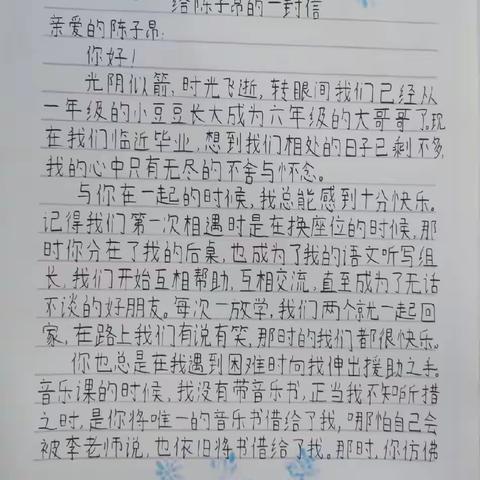 给陈子昂的一封信
亲爱的陈子昂:
你好!
光阴似箭,时光飞逝,转眼间我们已经从
一年级的小豆豆长大成为六年级的大哥哥了。现
在我们临近毕业,想到我们相处的日子已剩不多,
我的心中只有无尽的不舍与怀念。
与你在一起的时候,我总能感到十分快乐。
记得我们第一次相遇时是在换座位的时候,那
时你分在了我的后桌,也成为了我的语文听写组
长,我们开始互相帮助,互相交流,直至成为了无话
不谈的好朋友。每次一放学,我们两个就一起回
家,在路上我们有说有笑,那时的我们都很快乐。
你也总是在我遇到困难时向我伸出援助之手。
音乐课的时候,我没有带音乐书,正当我不知所措
之时,是你将唯一的音乐书借给了我,哪怕自己会
被李老师说,也依旧将书借给了我。那时,你仿佛